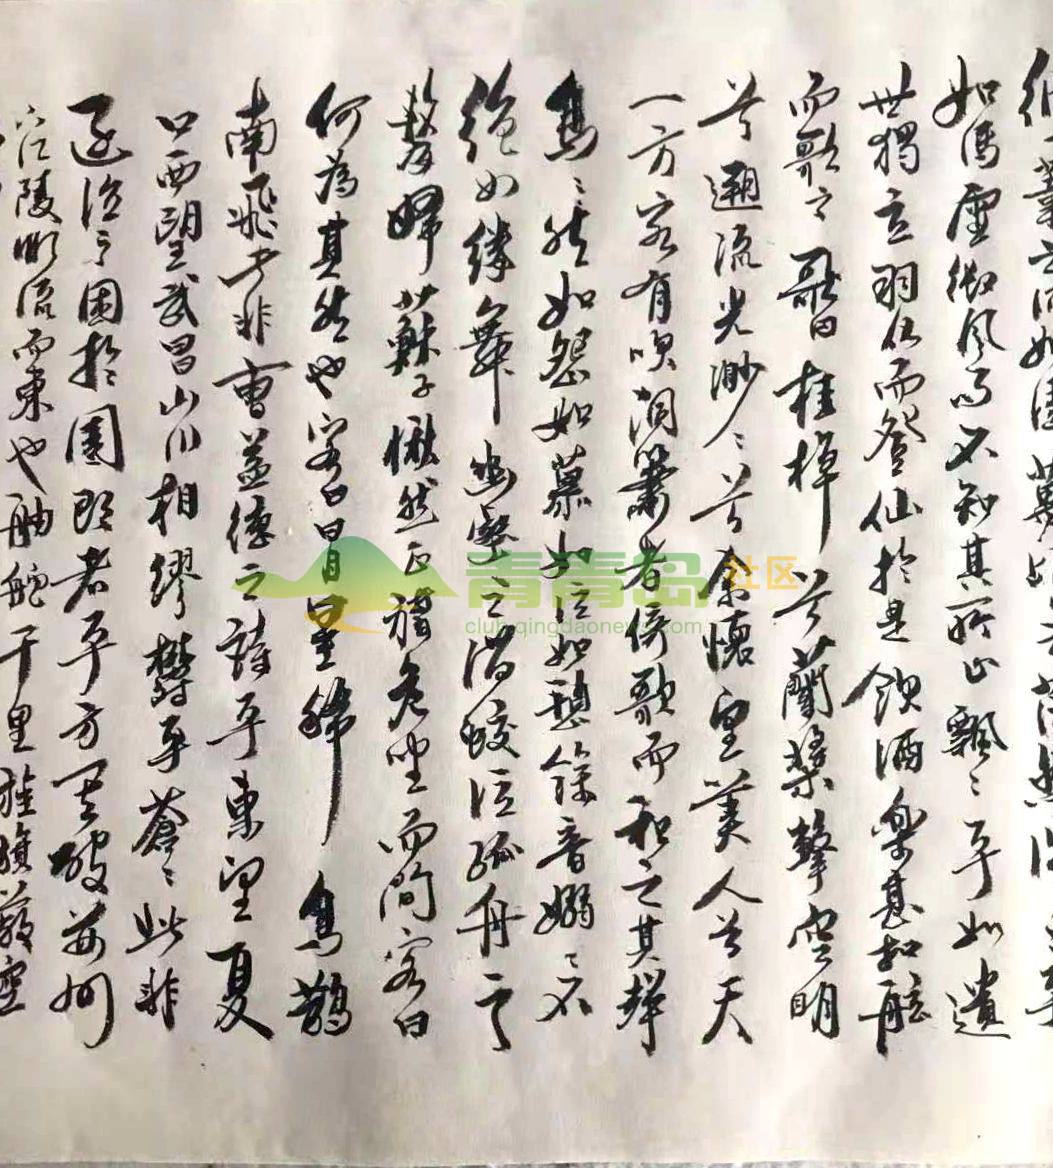 一葦之所如凌萬頃之茫然浩
如馮虛御風而不知其所止飄〻乎如遺
世獨立羽化而登仙於是飲酒樂甚扣舷
而歌之歌曰桂棹兮蘭槳擊空明
兮遡流光渺〻兮余懷望美人兮天
一方客有吹洞簫者倚歌而和之其聲
烏〻然如怨如慕如泣如愬餘音嫋〻不
絕如縷舞幽壑之潛蛟泣孤舟之
嫠婦蘇子愀然正襟危坐而問客曰
何為其然也客曰月明星稀烏鵲
南飛此非曹孟德之詩乎東望夏
口西望武昌山川相繆鬱乎蒼〻此非
孟德之困於周郎者乎方其破荊州
下江陵順流而東也舳艫千里旌旗蔽空
青青岛社区
club.qingdaonews.com